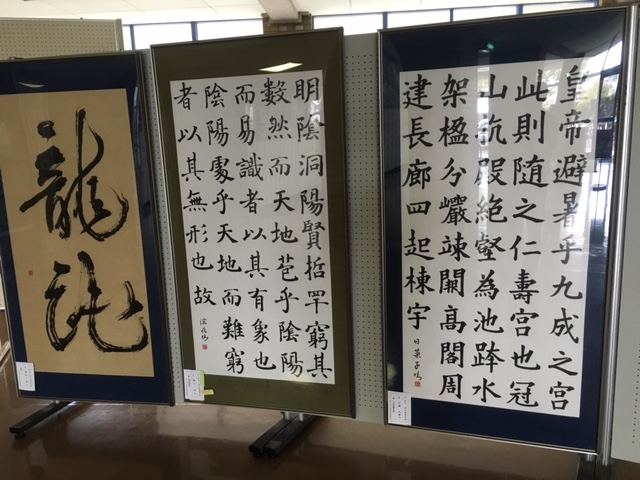 皇帝避暑乎九成之宮
此則随之仁壽宮也冠
山抗殿絶壑為池跨水
架楹分巖竦闕高閣周
建長廊四起棟宇
明陰洞陽賢哲罕窮其
數然而天地苞乎陰陽
而易識者以其有象也
陰陽處乎天地而難窮
者以其無形也故
龍